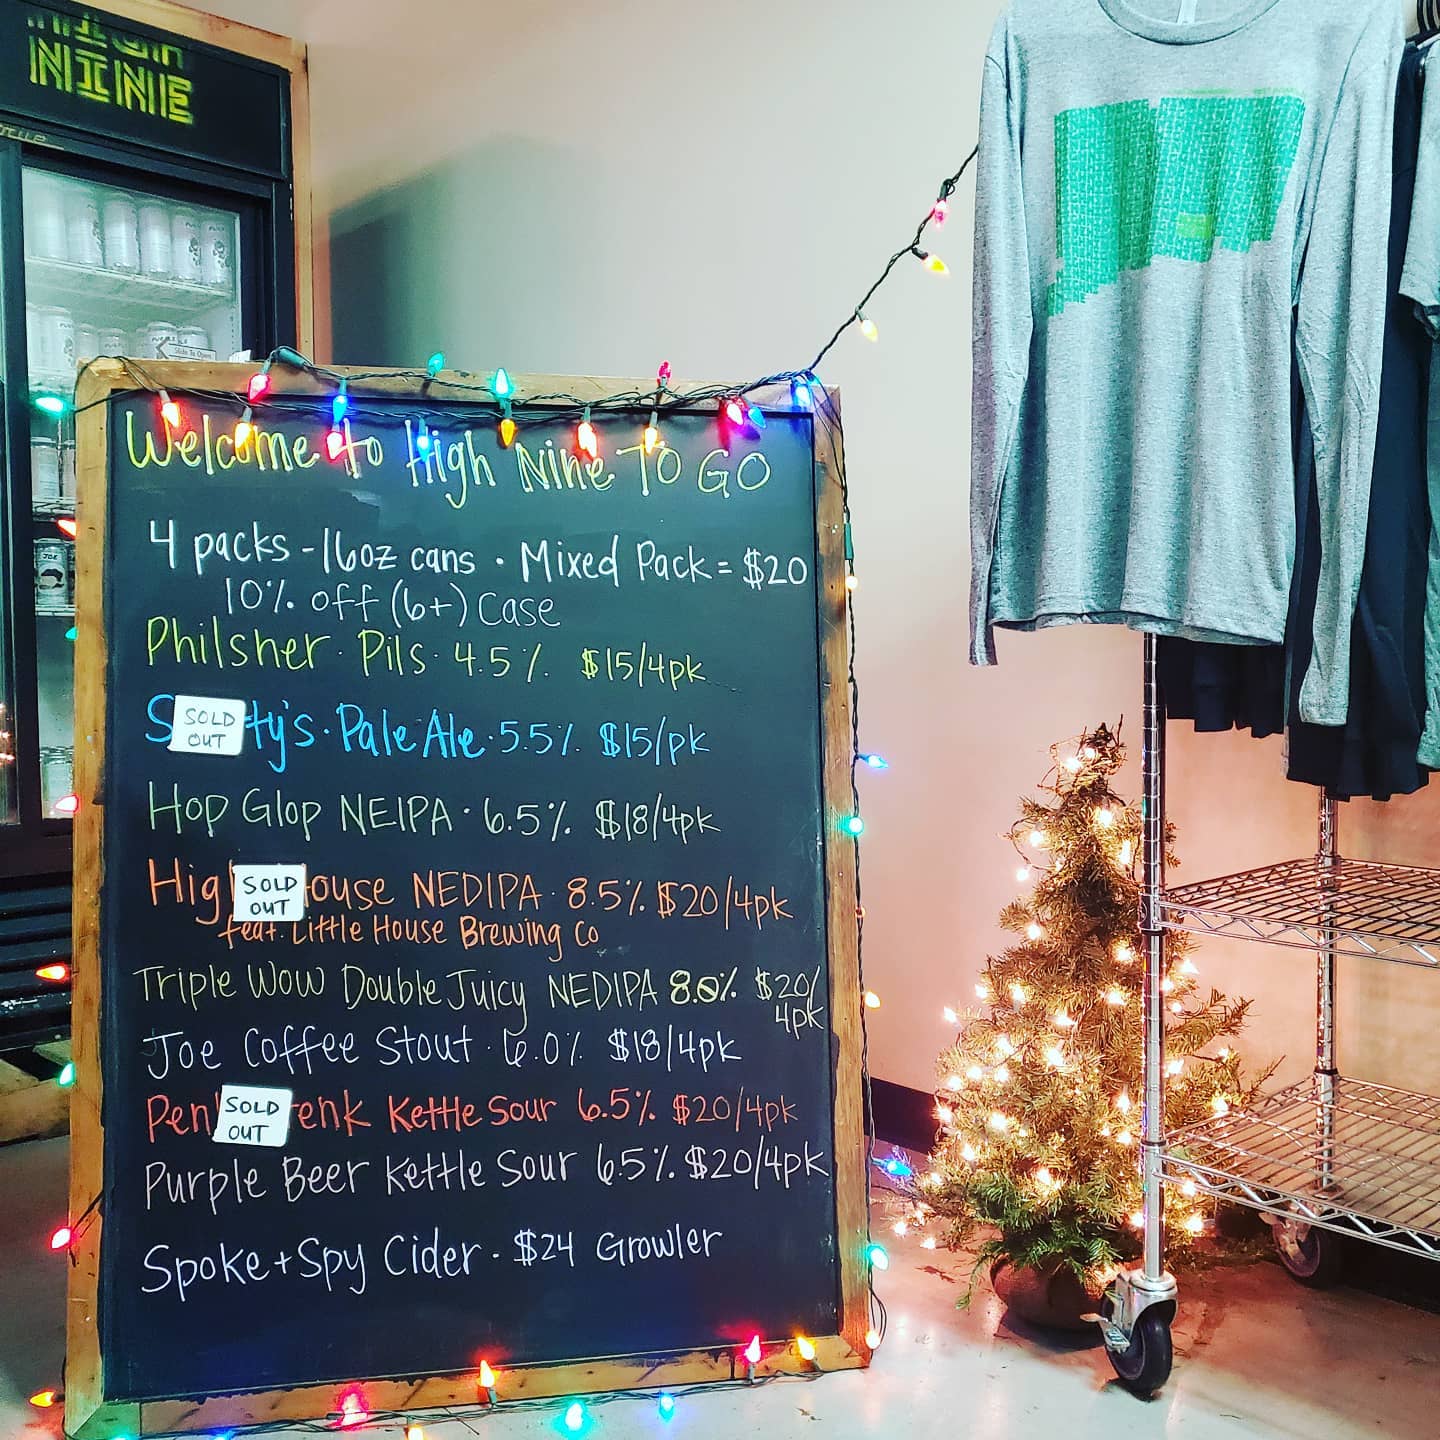 HIGH
NINE
Slide To Open
JOE
Welcome to High Nine TO GO
4 packs - 16oz cans · Mixed Pack = $20
10% off (6+) Case
Philsner · Pils · 4.5% $15/4pk
SOLD
OUT
ty's · Pale Ale · 5.5% $15/pk
Hop Glop NEIPA · 6.5% $18/4pk
SOLD
OUT
High ouse NEDIPA · 8.5% $20/4pk
feat. Little House Brewing Co
Triple Wow Double Juicy NEDIPA 8.0% $20/
4pk
Joe Coffee Stout · 6.0% $18/4pk
SOLD
OUT
Pen enk Kettle Sour 6.5% $20/4pk
Purple Beer Kettle Sour 6.5% $20/4pk
Spoke + Spy Cider - $24 Growler